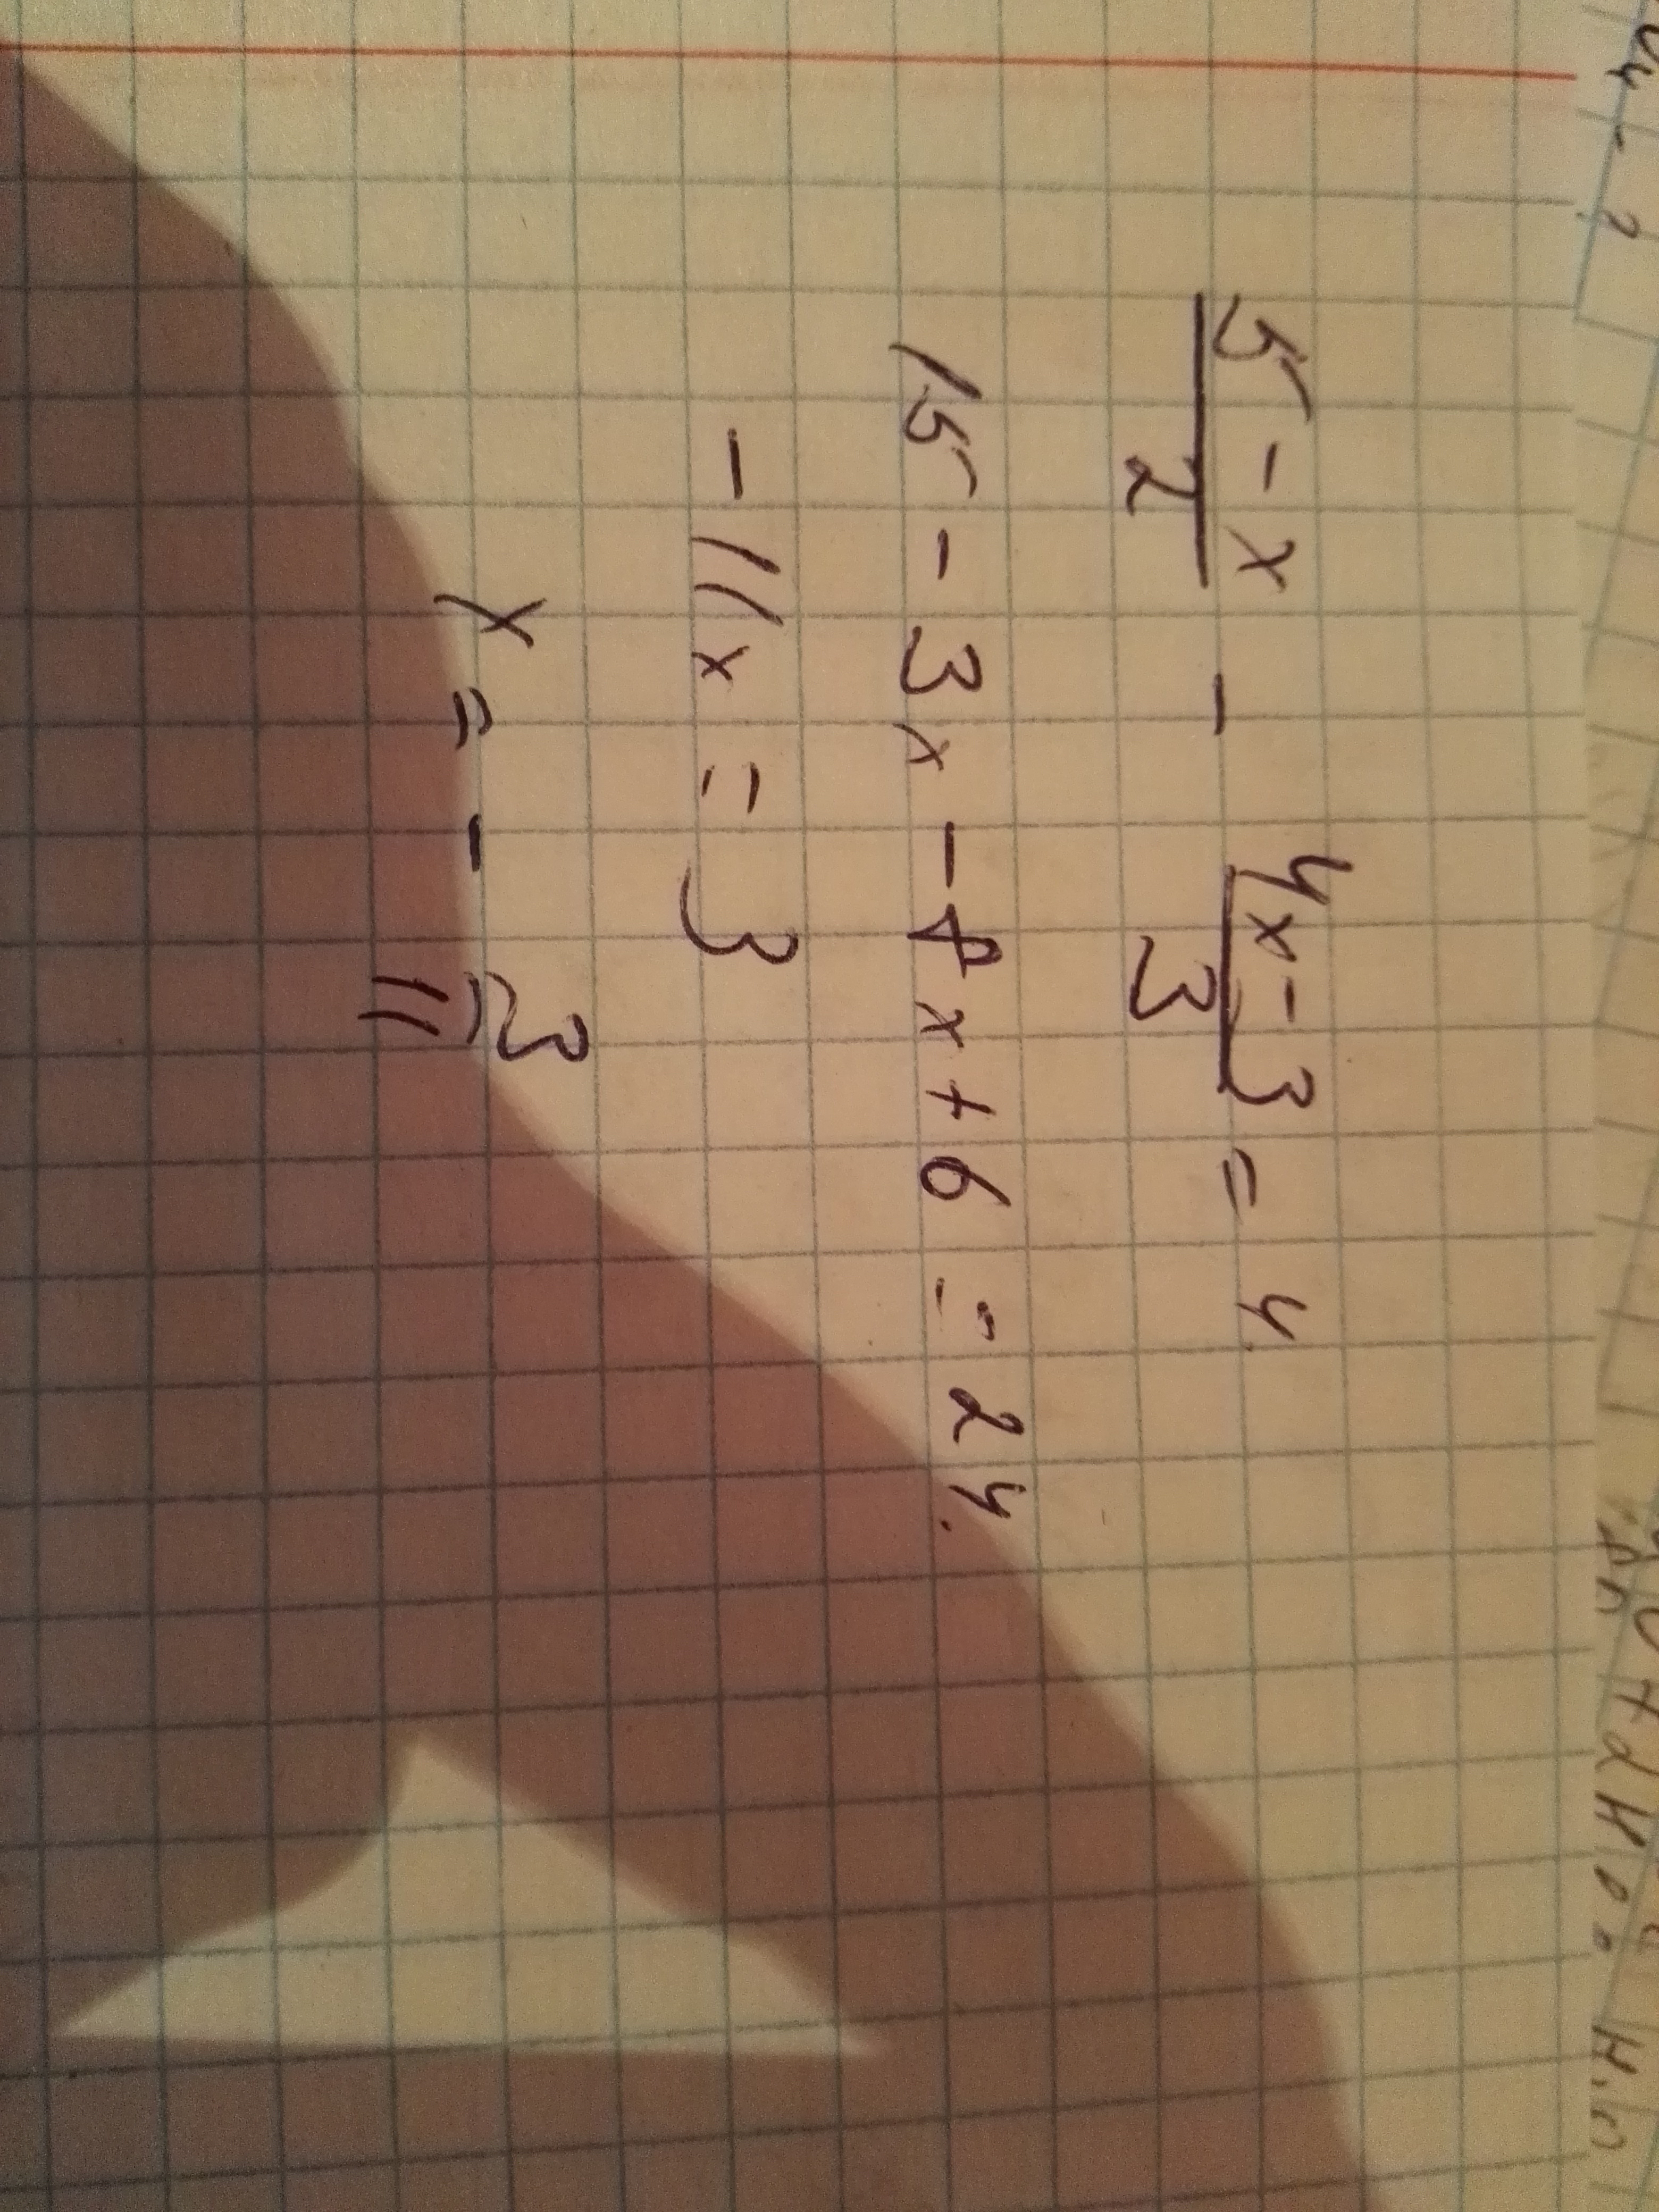 5 - x / 2 - 4x - 3 / 3 = 4
15 - 3x - 8x + 6 = 24.
- 11x = 3
x = - 3 / 11